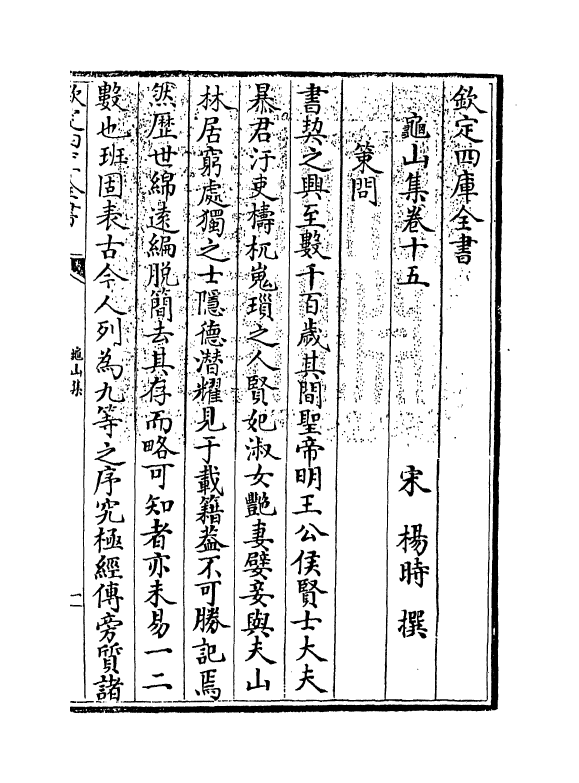 欽定四庫全書
龜山集卷十五
宋 楊時 撰
策問
書契之興至數千百歲其間聖帝明王公侯賢士大夫
暴君汙吏檮杌嵬瑣之人賢妃淑女艷妻嬖妾與夫山
林居窮處獨之士隱德潛耀見于載籍葢不可勝記焉
然歴世綿逺編脱簡去其存而略可知者亦未易一二
數也班固表古今人列為九等之序究極經傳旁質諸
欽定四庫全書
龜山集